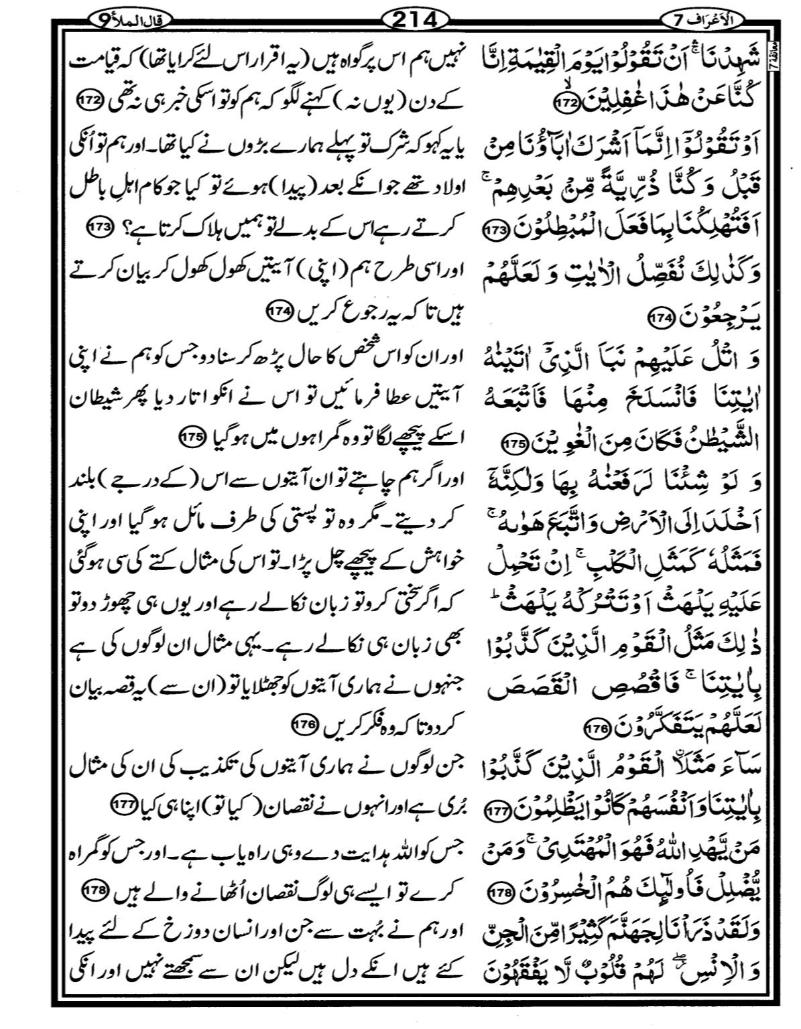 الاعراف 7
214
قال الملأ 9
معانقة 7
شَهِدْنَا ۛۚ اَنْ تَقُوْلُوْا يَوْمَ الْقِيٰمَةِ اِنَّا
كُنَّا عَنْ هٰذَا غٰفِلِيْنَ ۙ 172
اَوْ تَقُوْلُوْۤا اِنَّمَاۤ اَشْرَكَ اٰبَآؤُنَا مِنْ
قَبْلُ وَ كُنَّا ذُرِّيَّةً مِّنْۢ بَعْدِهِمْ ۚ
اَفَتُهْلِكُنَا بِمَا فَعَلَ الْمُبْطِلُوْنَ 173
وَ كَذٰلِكَ نُفَصِّلُ الْاٰيٰتِ وَ لَعَلَّهُمْ
يَرْجِعُوْنَ 174
وَ اتْلُ عَلَيْهِمْ نَبَاَ الَّذِيْۤ اٰتَيْنٰهُ
اٰيٰتِنَا فَانْسَلَخَ مِنْهَا فَاَتْبَعَهُ
الشَّيْطٰنُ فَكَانَ مِنَ الْغٰوِيْنَ 175
وَ لَوْ شِئْنَا لَرَفَعْنٰهُ بِهَا وَلٰكِنَّهٗۤ
اَخْلَدَ اِلَى الْاَرْضِ وَاتَّبَعَ هَوٰىهُ ۚ
فَمَثَلُهٗ كَمَثَلِ الْكَلْبِ ۚ اِنْ تَحْمِلْ
عَلَيْهِ يَلْهَثْ اَوْ تَتْرُكْهُ يَلْهَثْ ؕ
ذٰلِكَ مَثَلُ الْقَوْمِ الَّذِيْنَ كَذَّبُوْا
بِاٰيٰتِنَا ۚ فَاقْصُصِ الْقَصَصَ
لَعَلَّهُمْ يَتَفَكَّرُوْنَ 176
سَآءَ مَثَلَاۨ الْقَوْمُ الَّذِيْنَ كَذَّبُوْا
بِاٰيٰتِنَا وَ اَنْفُسَهُمْ كَانُوْا يَظْلِمُوْنَ 177
مَنْ يَّهْدِ اللّٰهُ فَهُوَ الْمُهْتَدِيْ ۚ وَ مَنْ
يُّضْلِلْ فَاُولٰٓئِكَ هُمُ الْخٰسِرُوْنَ 178
وَ لَقَدْ ذَرَاْنَا لِجَهَنَّمَ كَثِيْرًا مِّنَ الْجِنِّ
وَ الْاِنْسِ ۖ لَهُمْ قُلُوْبٌ لَّا يَفْقَهُوْنَ
نہیں ہم اس پر گواہ ہیں (یہ اقرار اس لئے کرایا تھا) کہ قیامت
کے دن (یوں نہ) کہنے لگو کہ ہم کو تو اسکی خبر ہی نہ تھی 172
یا یہ کہو کہ شرک تو پہلے ہمارے بڑوں نے کیا تھا۔ اور ہم تو اُنکی
اولاد تھے جو انکے بعد (پیدا) ہوئے تو کیا جو کام اہلِ باطل
کرتے رہے اس کے بدلے تو ہمیں ہلاک کرتا ہے؟ 173
اور اسی طرح ہم (اپنی) آیتیں کھول کھول کر بیان کرتے
ہیں تا کہ یہ رجوع کریں 174
اور ان کو اس شخص کا حال پڑھ کر سنا دو جس کو ہم نے اپنی
آیتیں عطا فرمائیں تو اس نے انکو اتار دیا پھر شیطان
اسکے پیچھے لگا تو وہ گمراہوں میں ہو گیا 175
اور اگر ہم چاہتے تو ان آیتوں سے اس (کے درجے) بلند
کر دیتے۔ مگر وہ تو پستی کی طرف مائل ہو گیا اور اپنی
خواہش کے پیچھے چل پڑا۔ تو اس کی مثال کتے کی سی ہو گئی
کہ اگر سختی کرو تو زبان نکالے رہے اور یوں ہی چھوڑ دو تو
بھی زبان ہی نکالے رہے۔ یہی مثال ان لوگوں کی ہے
جنہوں نے ہماری آیتوں کو جھٹلایا تو (ان سے) یہ قصہ بیان
کر دو تا کہ وہ فکر کریں 176
جن لوگوں نے ہماری آیتوں کی تکذیب کی ان کی مثال
بُری ہے اور انہوں نے نقصان (کیا تو) اپنا ہی کیا 177
جس کو اللہ ہدایت دے وہی راہ یاب ہے۔ اور جس کو گمراہ
کرے تو ایسے ہی لوگ نقصان اُٹھانے والے ہیں 178
اور ہم نے بُہت سے جن اور انسان دوزخ کے لئے پیدا
کئے ہیں انکے دل ہیں لیکن ان سے سمجھتے نہیں اور انکی